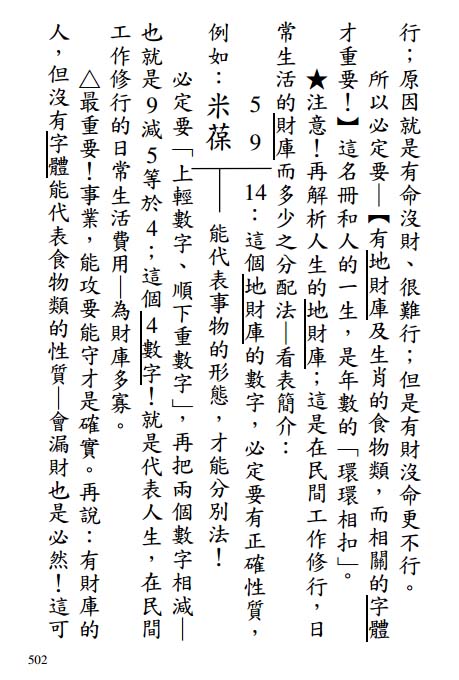 行；原因就是有命沒財、很難行；但是有財沒命更不行。
所以必定要—【有地財庫及生肖的食物類，而相關的字體
才重要！】這名冊和人的一生，是年數的「環環相扣」。
★注意！再解析人生的地財庫；這是在民間工作修行，日
常生活的財庫而多少之分配法—看表簡介：
5 9 14：這個地財庫的數字，必定要有正確性質，
例如：米葆——能代表事物的形態，才能分別法！
必定要「上輕數字、順下重數字」，再把兩個數字相減—
也就是9減5等於4；這個4數字！就是代表人生，在民間
工作修行的日常生活費用—為財庫多寡。
△最重要！事業，能攻要能守才是確實。再說：有財庫的
人，但沒有字體能代表食物類的性質—會漏財也是必然！這可
502